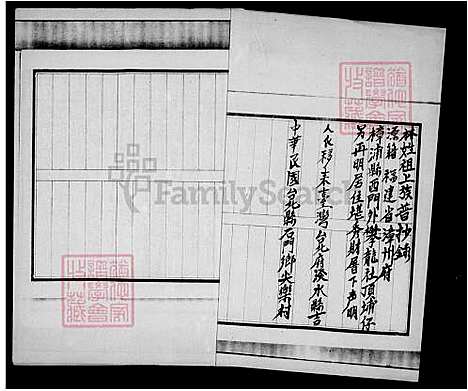 林姓祖上族普抄錄
漳籍福建省漳州府
樟浦縣西門外攀龍社頂埔仔
另再明居住堪夯財厝下声明
人民移來臺灣台北府淡水縣吉
中華民國台北縣石門鄉尖樂村
FamilySearch